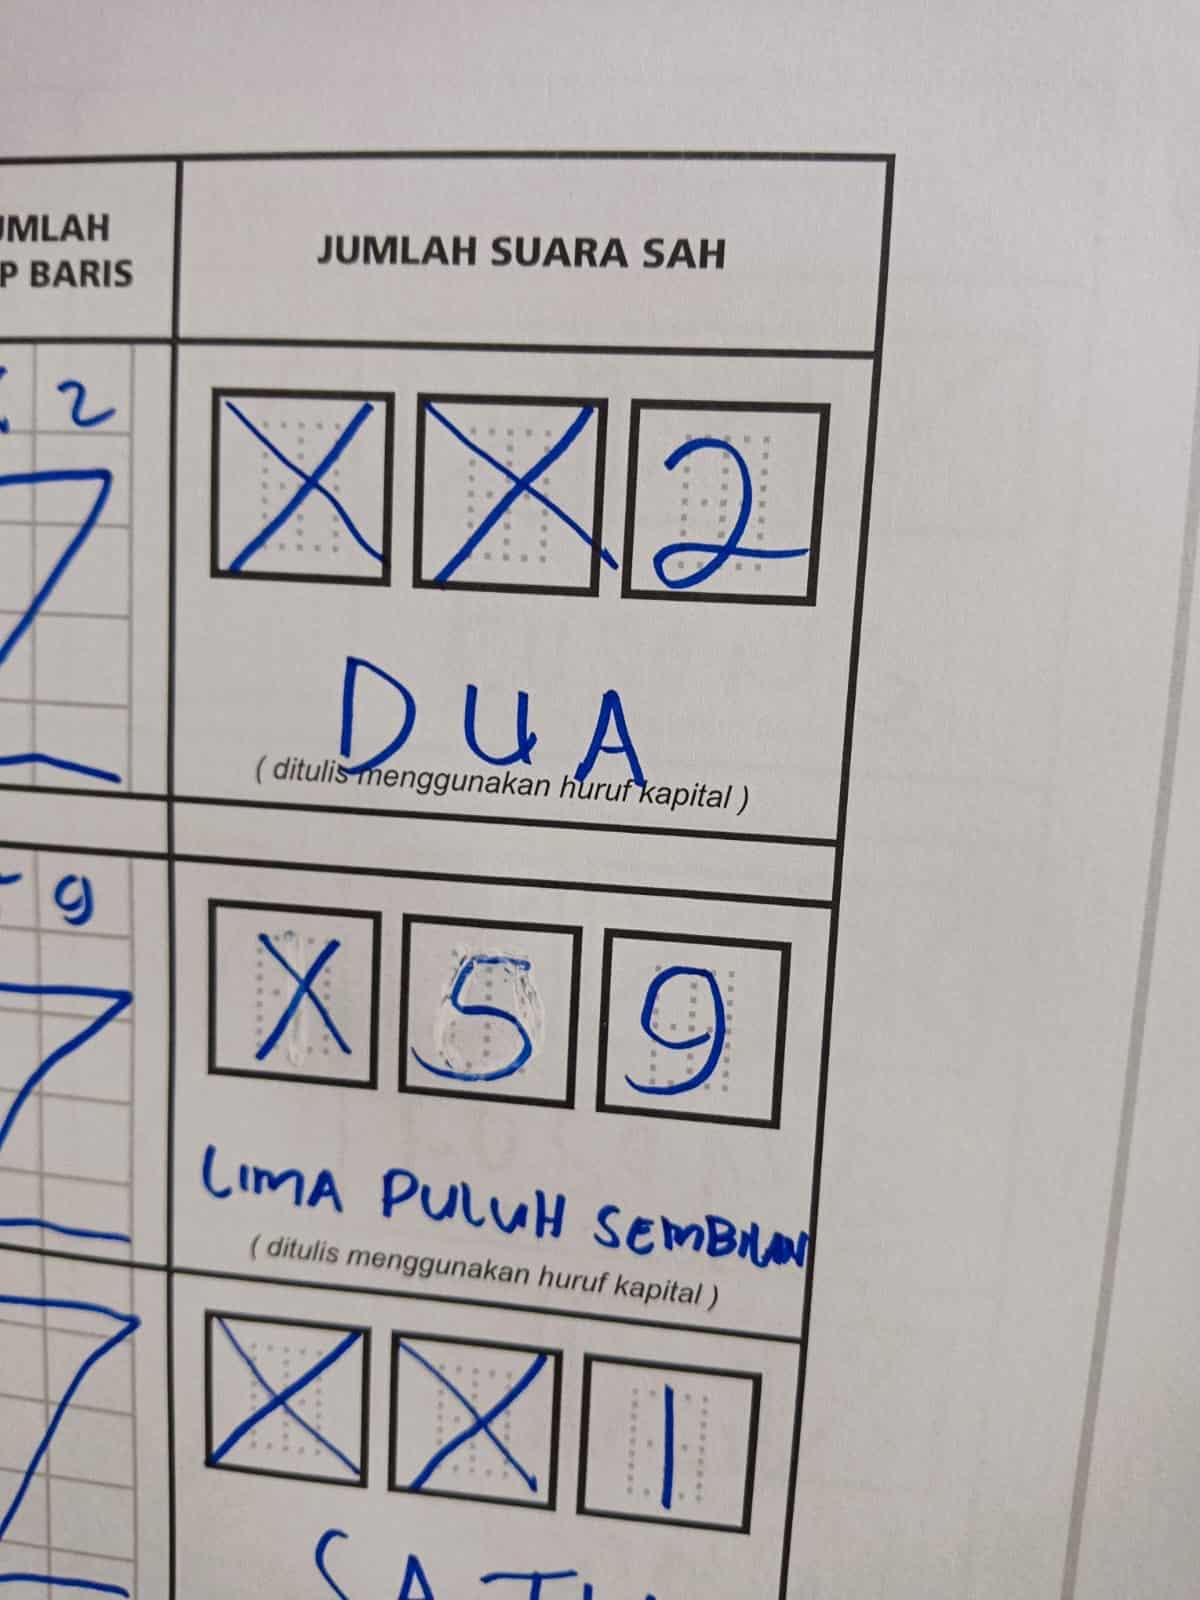 JUMLAH SUARA SAH
BARIS
2
X X 2
DUA
( ditulis menggunakan huruf kapital )
9
X 5 9
LIMA PULUH SEMBILAN
( ditulis menggunakan huruf kapital )
X X 1